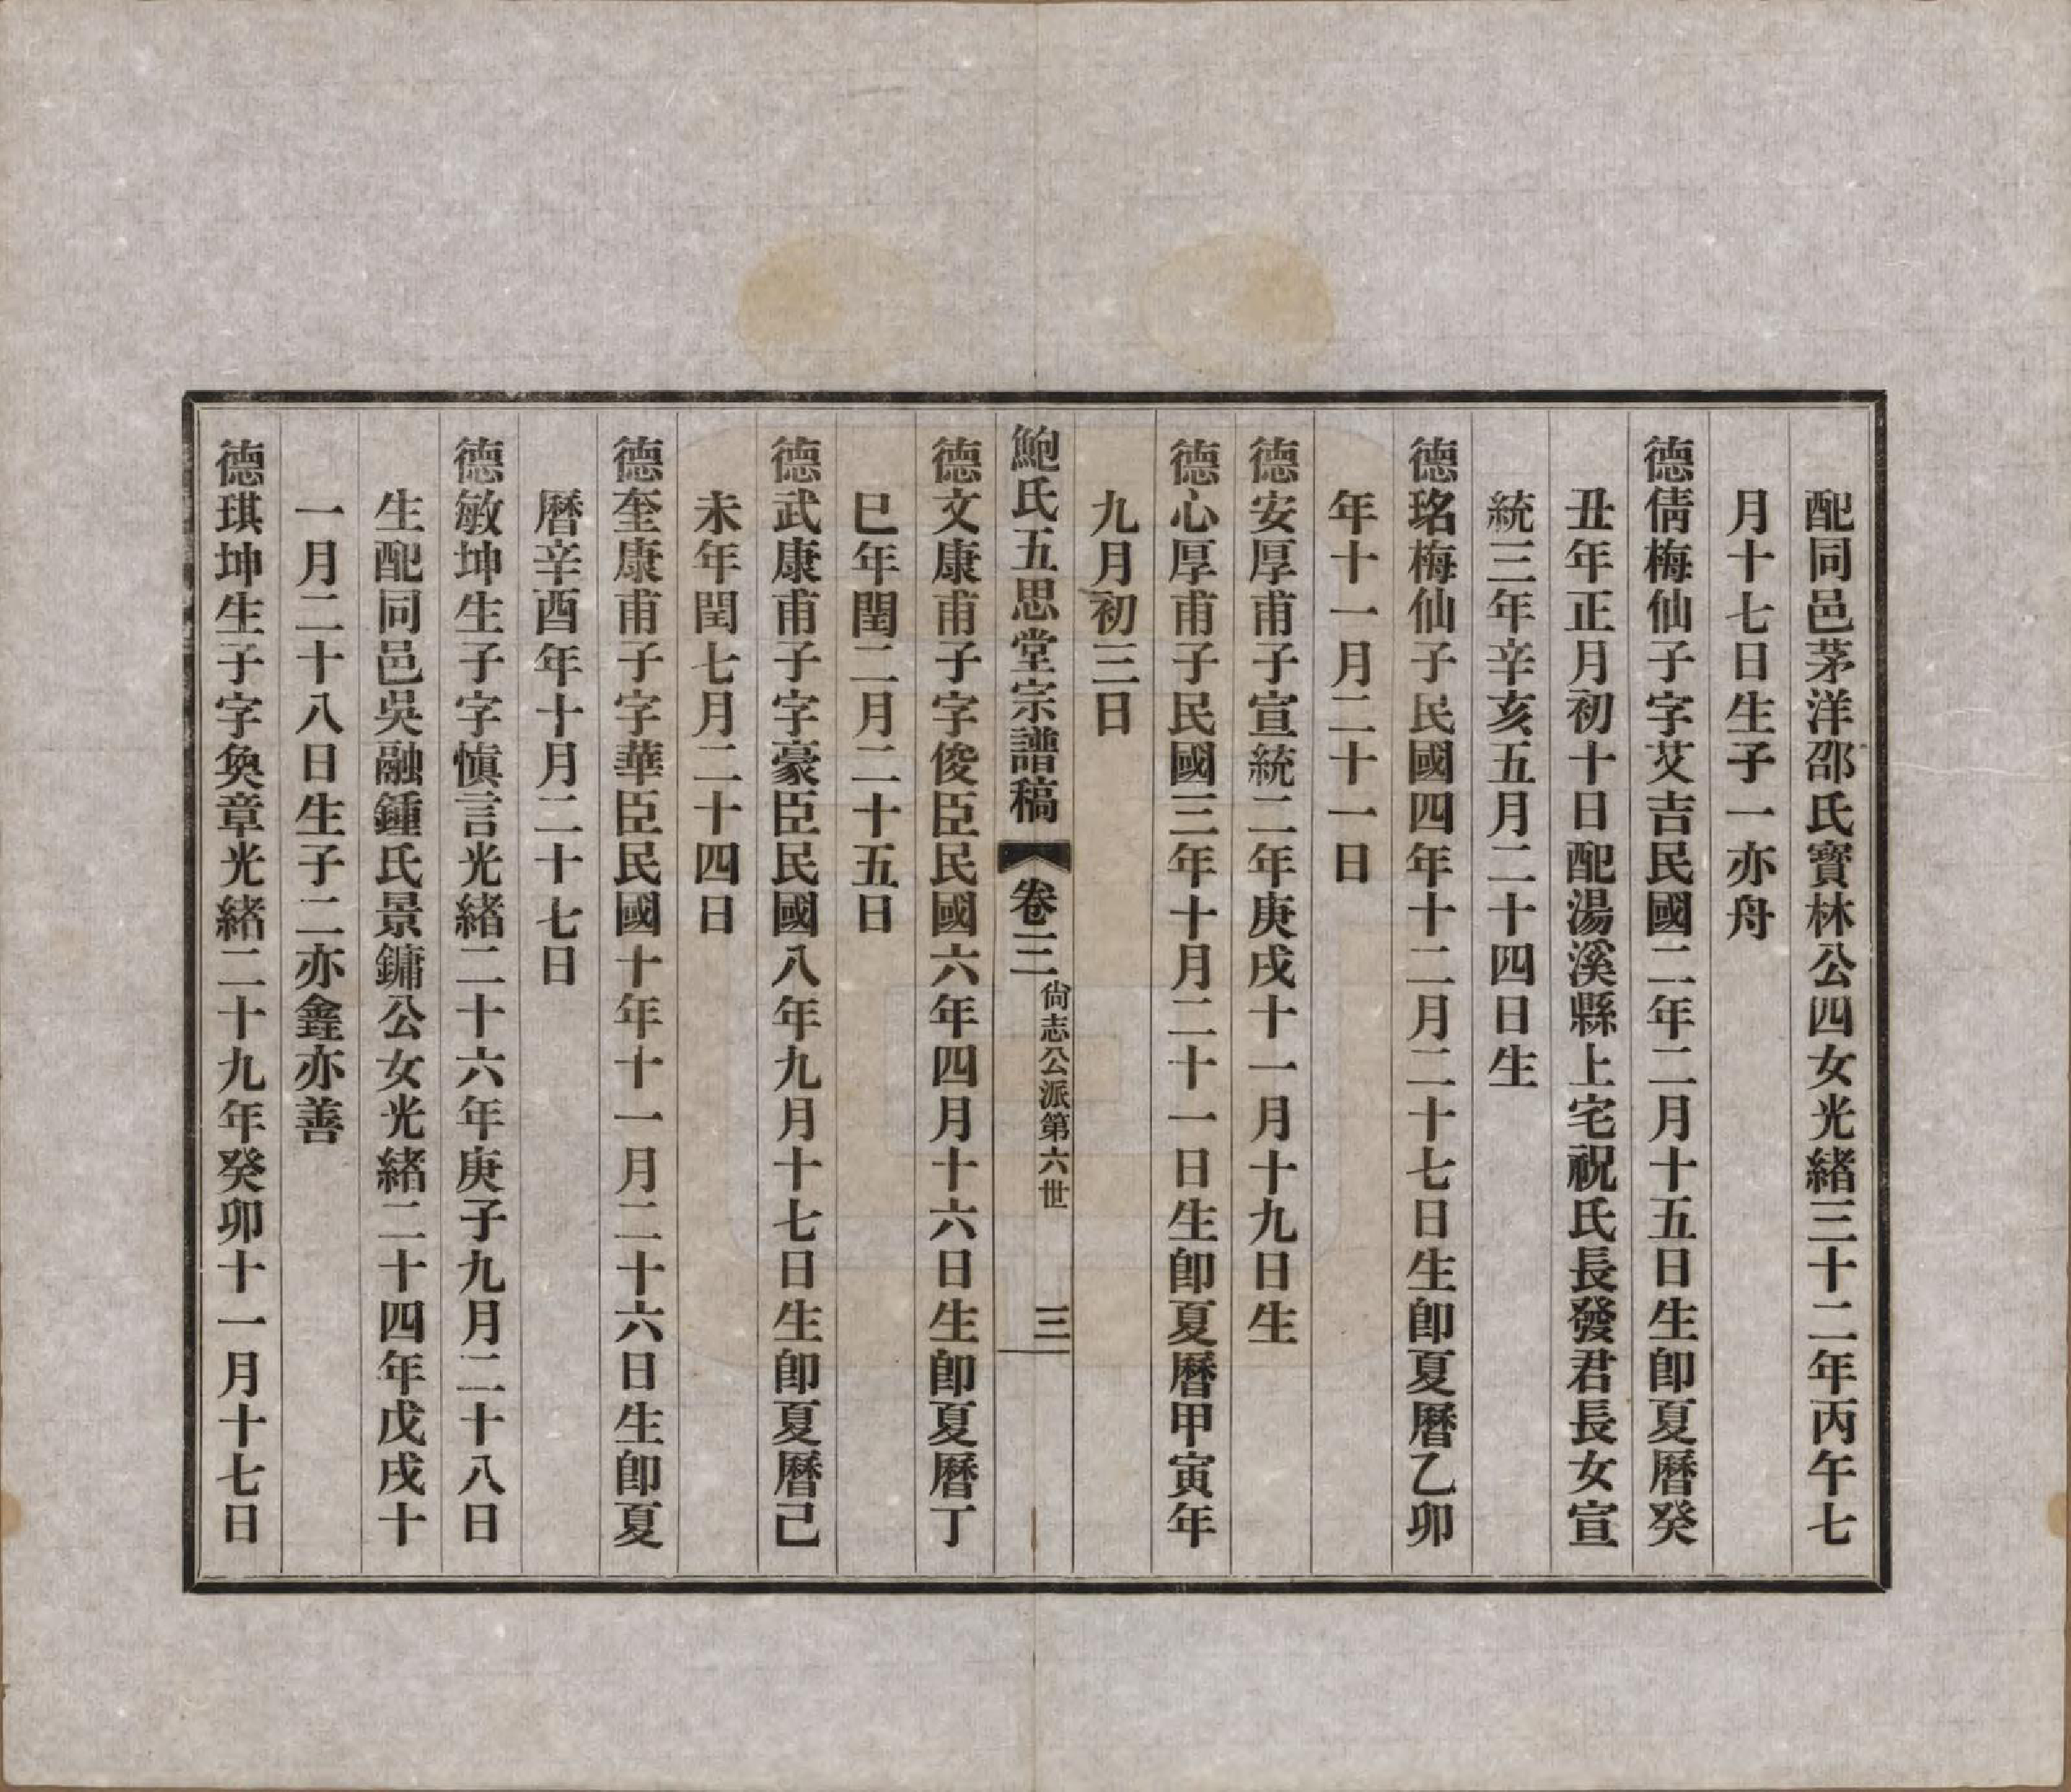 配同邑茅洋邵氏寶林公四女光緒三十二年丙午七
月十七日生子一亦舟
德倩梅仙子字艾吉民國二年二月十五日生卽夏曆癸
丑年正月初十日配湯溪縣上宅祝氏長發君長女宣
統三年辛亥五月二十四日生
德珆梅仙子民國四年十二月二十七日生卽夏曆乙卯
年十一月二十一日
德安厚甫子宣統二年庚戌十一月十九日生
德心厚甫子民國三年十月二十一日生卽夏曆甲寅年
九月初三日
鮑氏五思堂宗譜稿
卷三
尙志公派第六世
三
德文康甫子字俊臣民國六年四月十六日生卽夏曆丁
巳年閏二月二十五日
德武康甫子字豪臣民國八年九月十七日生卽夏曆己
未年閏七月二十四日
德奎康甫子字華臣民國十年十一月二十六日生卽夏
曆辛酉年十月二十七日
德敏坤生子字愼言光緒二十六年庚子九月二十八日
生配同邑吳融鍾氏景鏞公女光緒二十四年戊戌十
一月二十八日生子二亦鑫亦善
德琪坤生子字奐章光緒二十九年癸卯十一月十七日